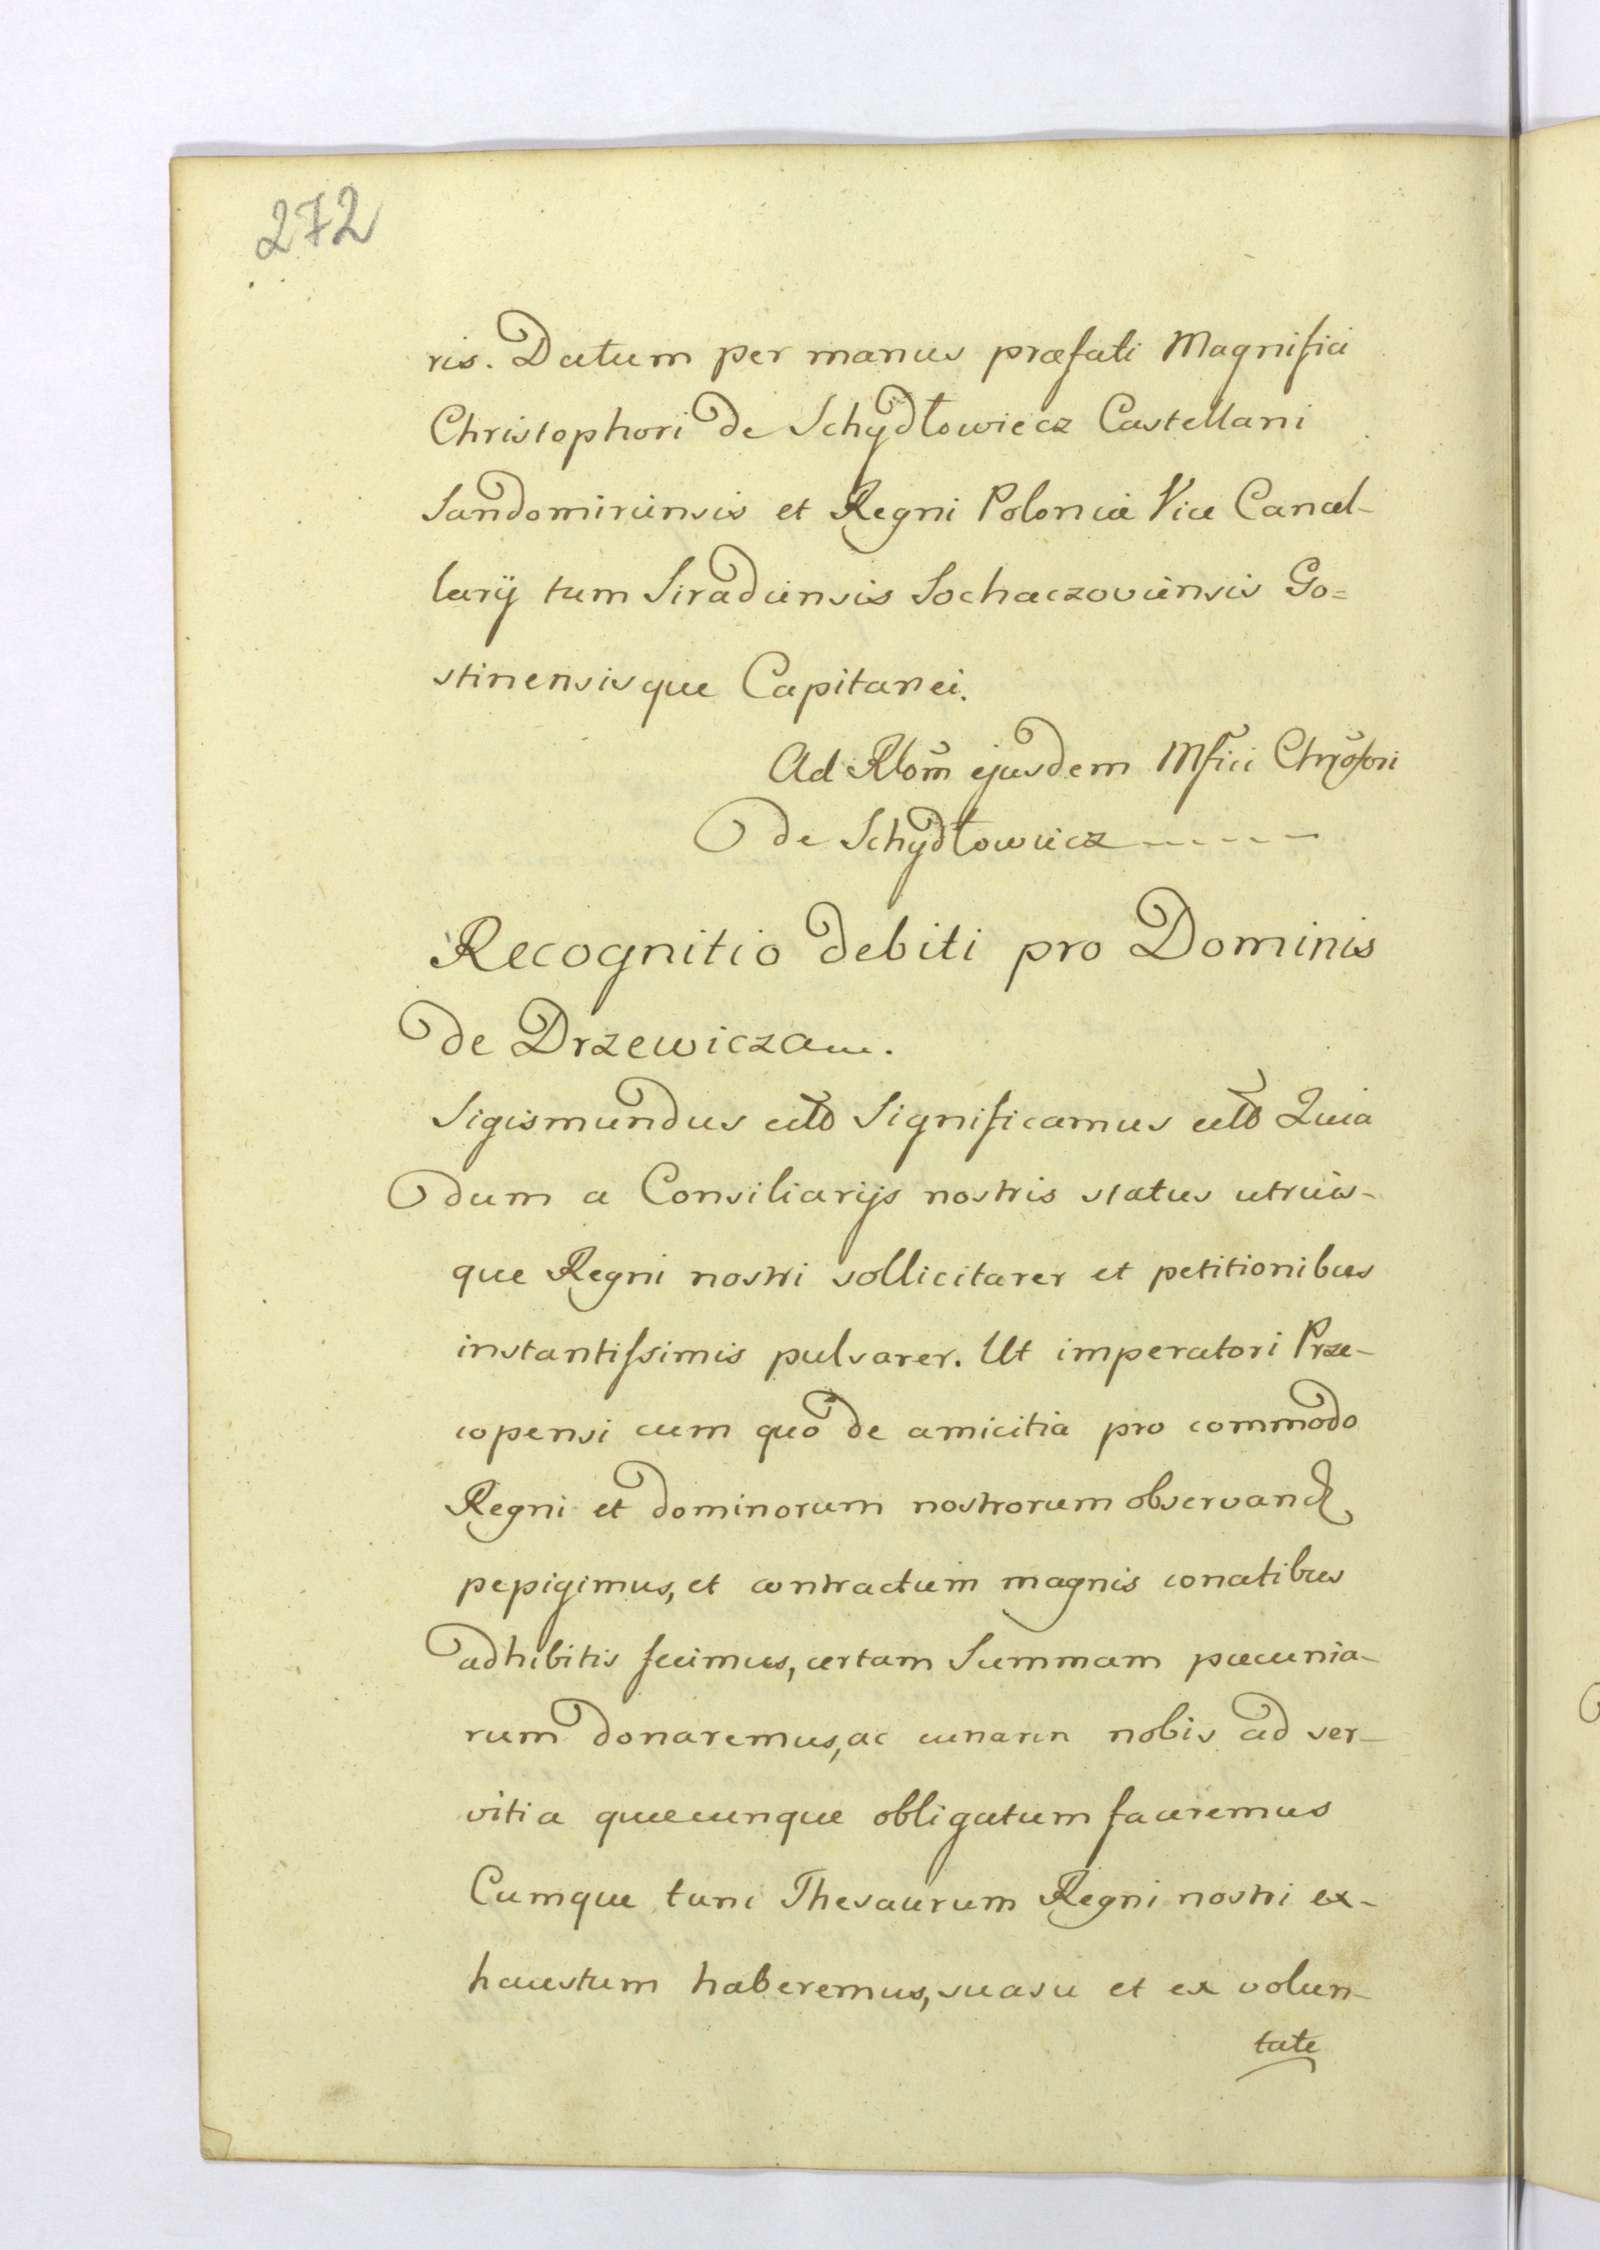 272
ris. Datum per manus præfati Magnifici
Christophori de Schydłowiecz Castellani
Sandomiriensis et Regni Poloniæ Vice Cancel-
larij tum Siradiensis Sochaczoviensis Go=
stinensisque Capitanei.
Ad Rłom̃ ejusdem Mfici Chrõfori
de Schydłowiecz - - - - -
Recognitio debiti pro Dominis
de Drzewicza
Sigismundus Significamus Quia
dum a Consiliarijs nostris status utrius-
que Regni nostri sollicitarer et petitionibus
instantissimis pulsarer. Ut imperatori Prze-
copensi cum quo de amicitia pro commodo
Regni et dominorum nostrorum observand
pepigimus, et contractum magnis conatibus
adhibitis fecimus, certam Summam pæcunia-
rum donaremus, ac nobis ad ser-
vitia quæcunque obligatum faceremus
Cumque tunc Thesaurum Regni nostri ex-
haustum haberemus, suasu et ex volun-
tate